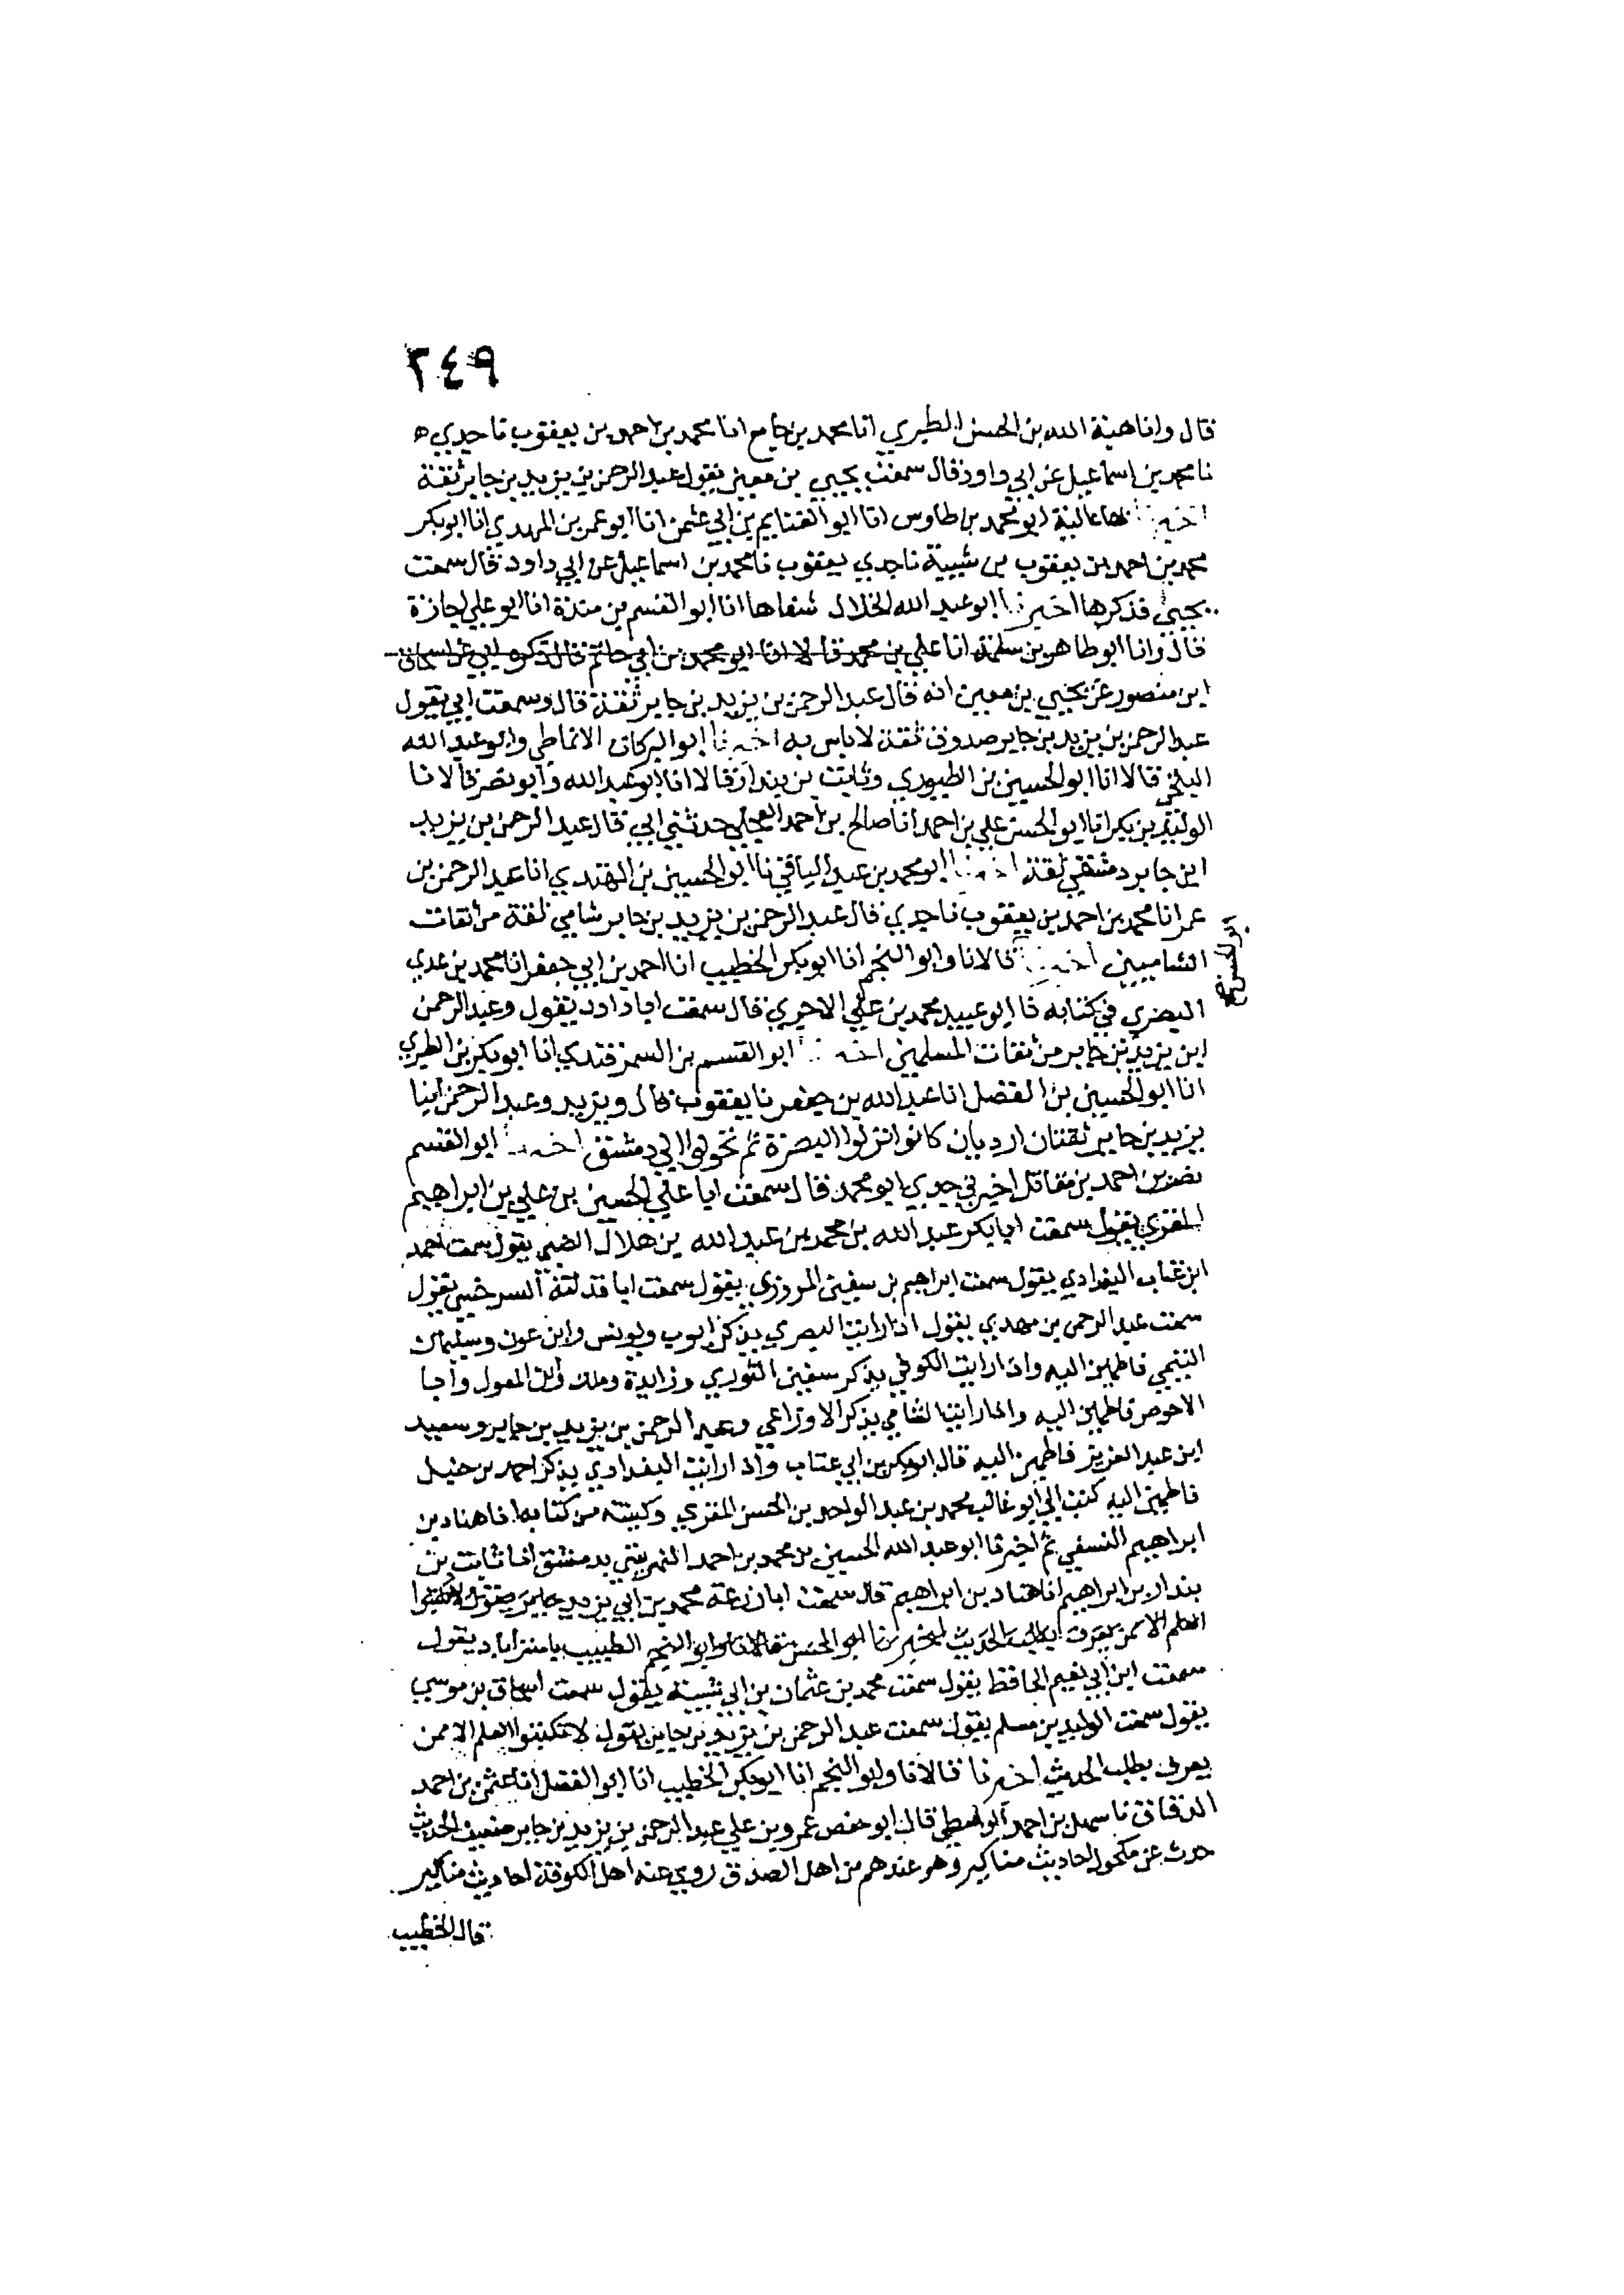 ٢٤٩
قال وانا هبة الله بن الحسن الطبري انا محمد بن جامع انا محمد بن احمد بن يعقوب نا جدي ه
نا محمد بن اسماعيل عن ابي داود قال سمعت يحيى بن معين يقول عبد الرحمن بن يزيد بن جابر ثقة
اخبرنا بها عالية ابو محمد بن طاوس انا ابو الغنايم بن ابي عثمن انا ابو عمر بن المهدي انا ابو بكر
محمد بن احمد بن يعقوب بن شيبة نا جدي يعقوب نا محمد بن اسماعيل عن ابي داود قال سمعت
يحيى فذكرها اخبرنا ابو عبد الله الخلال شفاها انا ابو القسم بن مندة انا ابو علي اجازة
قال وانا ابو طاهر بن سلمة انا علي بن محمد قالا انا ابو محمد بن ابي حاتم قال ذكره ابي عن اسحاق
ابن منصور عن يحيى بن معين انه قال عبد الرحمن بن يزيد بن جابر ثقة قال وسمعت ابي يقول
عبد الرحمن بن يزيد بن جابر صدوق ثقة لا باس به اخبرنا ابو البركات الانماطي وابو عبد الله
البلخي قالا انا ابو الحسين بن الطيوري وثابت بن بندار قالا انا ابو عبد الله وابو نصر قالا نا
الوليد بن بكر انا ابو الحسن علي بن احمد انا صالح بن احمد العجلي حدثني ابي قال عبد الرحمن بن يزيد
ابن جابر دمشقي ثقة اخبرنا ابو محمد بن عبد الباقي نا ابو الحسين بن المهتدي انا عبد الرحمن بن
عمر انا محمد بن احمد بن يعقوب نا جدي قال عبد الرحمن بن يزيد بن جابر شامي ثقة من ثقات
الشاميين اخبرنا ابو الحسن قالا نا وابو النجم انا ابو بكر الخطيب انا احمد بن ابي جعفر انا محمد بن عدي
البصري في كتابه نا ابو عبيد محمد بن علي الاجري قال سمعت ابا داود يقول وعبد الرحمن
ابن يزيد بن جابر من ثقات المسلمين اخبرنا ابو القسم بن السمرقندي انا ابو بكر بن الطبري
انا ابو الحسين بن الفضل انا عبد الله بن جعفر نا يعقوب قال ويزيد وعبد الرحمن ابنا
يزيد بن جابر ثقتان ازديان كانوا نزلوا البصرة ثم تحولوا الى دمشق اخبرنا ابو القسم
نصر بن احمد بن مقاتل اخبرني جدي ابو محمد قال سمعت ابا علي الحسين بن علي بن ابراهيم
المقري يقول سمعت ابا بكر عبد الله بن محمد بن عبد الله بن هلال الضبي يقول سمعت احمد
ابن عتاب البغدادي يقول سمعت ابراهيم بن سفين المروزي يقول سمعت ابا قدامة السرخسي يقول
سمعت عبد الرحمن بن مهدي يقول اذا رايت البصري يذكر ايوب ويونس وابن عون وسليمان
التيمي فاطمين اليه واذا رايت الكوفي يذكر سفين الثوري وزايدة وملك بن المغول وابا
الاحوص فاطمين اليه واذا رايت الشامي يذكر الاوزاعي وعبد الرحمن بن يزيد بن جابر وسعيد
ابن عبد العزيز فاطمين اليه قال ابو بكر بن ابي عتاب واذا رايت البغدادي يذكر احمد بن حنبل
فاطمين اليه كتب الي ابو غالب محمد بن عبد الواحد بن الحسن المقري وكتبته من كتابه انا هناد بن
ابراهيم النسفي ثم اخبرنا ابو عبد الله الحسين بن محمد بن احمد النهربيني بدمشق انا ثابت بن
بندار بن ابراهيم انا هناد بن ابراهيم قال سمعت ابا زرعة محمد بن ابي يزيد
العلم الا ممن يعرف بطلب الحديث اخبرنا ابو الحسن قالا نا وابو النجم الطبيب باستراباد يقول
سمعت ابن ابي نعيم الحافظ يقول سمعت محمد بن عثمان بن ابي شيبة يقول سمعت اسحاق بن موسى
يقول سمعت الوليد بن مسلم يقول سمعت عبد الرحمن بن يزيد بن جابر يقول لا تكتبوا العلم الا ممن
يعرف بطلب الحديث اخبرنا قالا نا وابو النجم انا ابو بكر الخطيب انا ابو الفضل انا عثمن بن احمد
الدقاق نا سهل بن احمد الواسطي قال ابو حفص عمرو بن علي عبد الرحمن بن يزيد بن جابر ضعيف الحديث
حدث عن مكحول احاديث مناكير وهو عندهم من اهل الصدق روى عنه اهل الكوفة احاديث مناكير
قال الخطيب